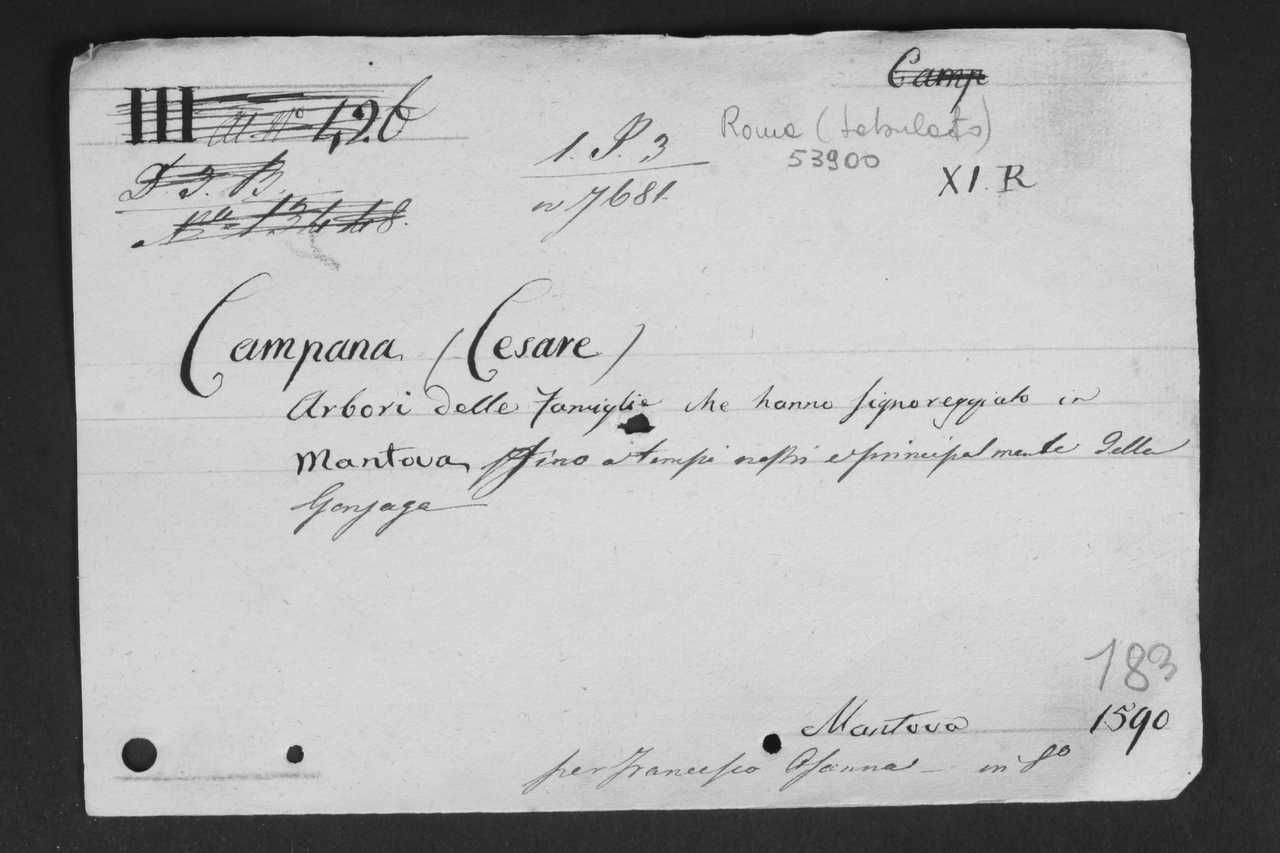 Camp
III 426
Roma (tabulato)
53900
1. P. 3
n 7681
XI. R
D. 3. B.
N.º 13448.
Campana (Cesare)
Arbori delle Famiglie che hanno signoreggiato in
Mantova, fino a tempi nostri e principalmente della
Gonzaga
183
Mantova 1590
per Francesco Osanna – in 8º